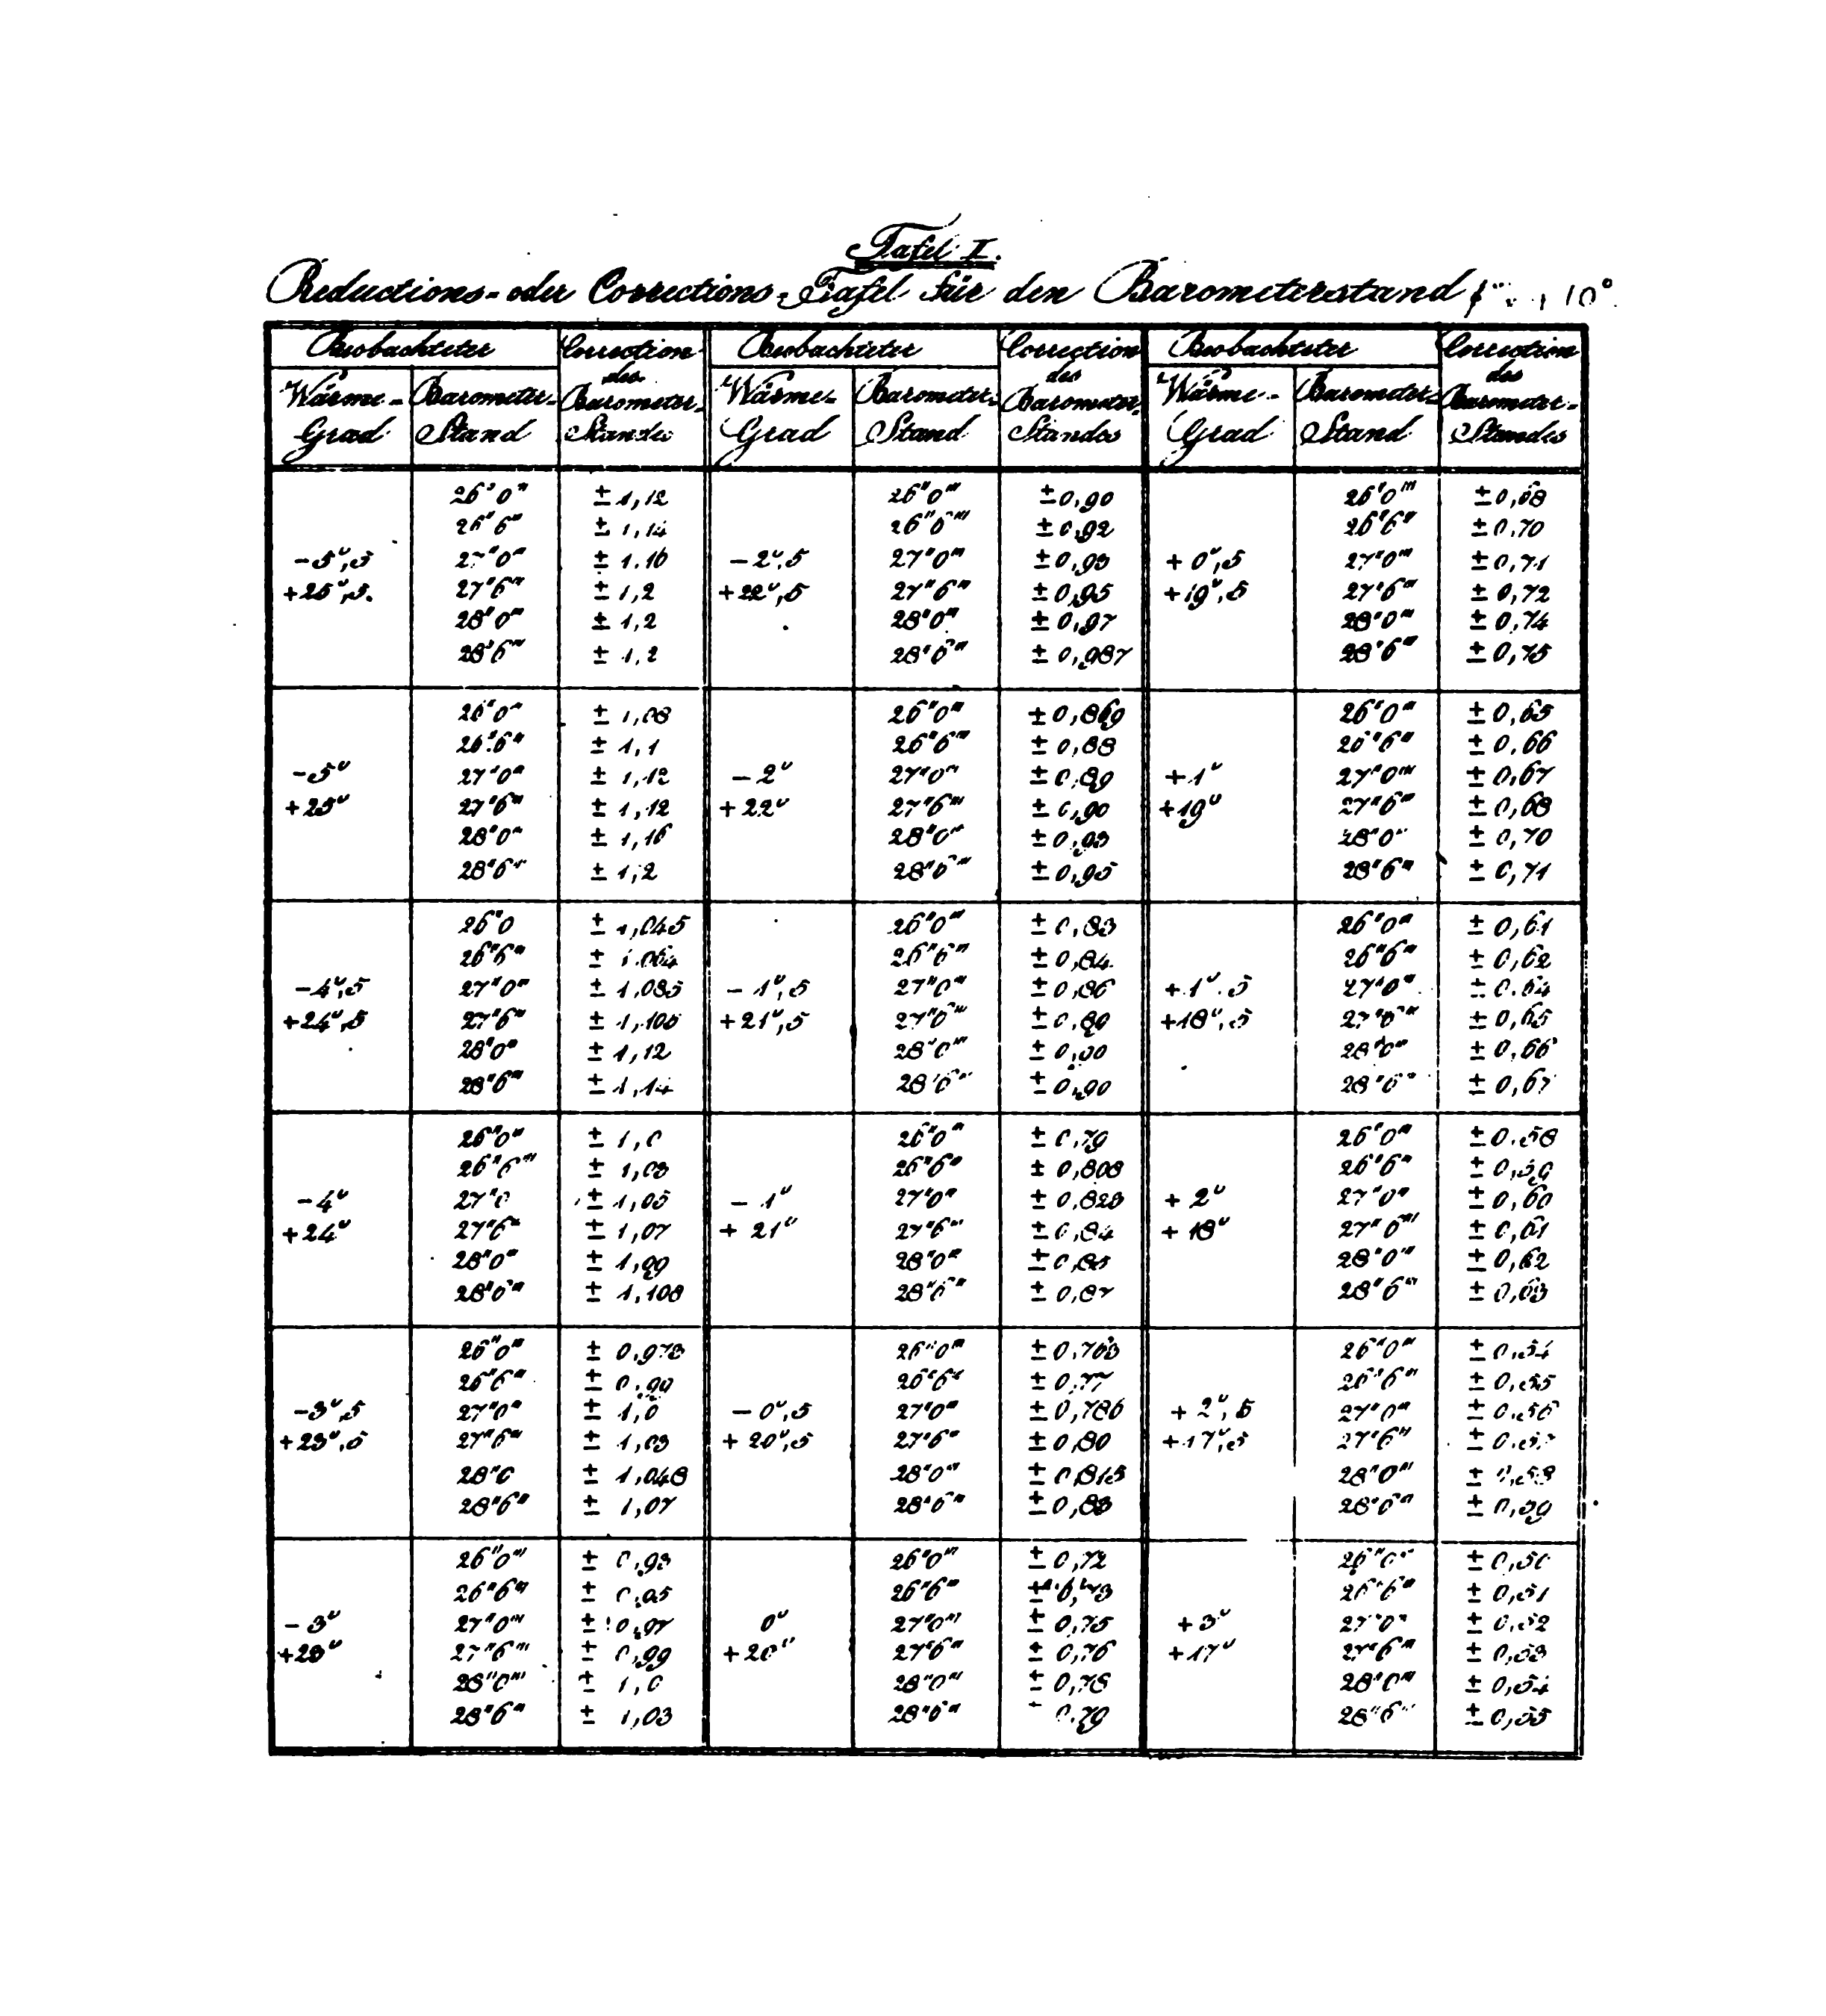 Tafel I.
Reductions- oder Corrections-Tafel für den Barometerstand 10°
Beobachteter Correction Beobachteter Correction Beobachteter Correction
des des des
Wärme- Barometer- Barometer- Wärme- Barometer- Barometer- Wärme- Barometer- Barometer-
Grad Stand Standes Grad Stand Standes Grad Stand Standes
26"0''' ± 1,12 26"0''' ± 0,90 26"0''' ± 0,68
26"6''' ± 1,14 26"6''' ± 0,92 26"6''' ± 0,70
-5°,5 27"0''' ± 1.16 -2°,5 27"0''' ± 0,93 +0°,5 27"0''' ± 0,71
+25°,5. 27"6''' ± 1,2 +22°,5 27"6''' ± 0,95 +19°,5 27"6''' ± 0,72
28"0''' ± 1,2 28"0''' ± 0,97 28"0''' ± 0,74
28"6''' ± 1,2 28"6''' ± 0,987 28"6''' ± 0,75
26"0''' ± 1,08 26"0''' ± 0,869 26"0''' ± 0,65
26"6''' ± 1,1 26"6''' ± 0,88 26"6''' ± 0,66
-5° 27"0''' ± 1,12 -2° 27"0''' ± 0,89 +1° 27"0''' ± 0,67
+25° 27"6''' ± 1,12 +22° 27"6''' ± 0,90 +19° 27"6''' ± 0,68
28"0''' ± 1,16 28"0''' ± 0,93 28"0''' ± 0,70
28"6''' ± 1,2 28"6''' ± 0,95 28"6''' ± 0,71
26"0 ± 1,045 26"0''' ± 0,83 26"0''' ± 0,61
26"6''' ± 1.064 26"6''' ± 0,84 26"6''' ± 0,62
-4°,5 27"0''' ± 1,085 -1°,5 27"0''' ± 0,86 +1°,5 27"0''' ± 0.64
+24°,5 27"6''' ± 1,106 +21°,5 27"6''' ± 0,89 +18°,5 27"6''' ± 0,65
28"0''' ± 1,12 28"0''' ± 28"0''' ± 0,66
28"6''' ± 1,14 28"6''' ± 0,90 28"6''' ± 0,67
26"0''' ± 1,0 26"0''' ± 0,79 26"0''' ± 0.58
26"6''' ± 1,03 26"6''' ± 0,808 26"6''' ± 0,59
-4° 27"0 ± 1,05 -1° 27"0''' ± 0,823 +2° 27"0''' ± 0,60
+24° 27"6''' ± 1,07 +21° 27"6''' ± 0,84 +18° 27"6''' ± 0,61
28"0''' ± 1,99 28"0''' ± 0,85 28"0''' ± 0,62
28"6''' ± 1,108 28"6''' ± 0,87 28"6''' ± 0,63
26"0''' ± 0,973 26"0''' ± 0,763 26"0''' ± 0,54
26"6''' ± 0,99 26"6''' ± 0,77 26"6''' ± 0,55
-3°,5 27"0''' ± 1,0 -0°,5 27"0''' ± 0,786 +2°,5 27"0''' ± 0,56
+23°,5 27"6''' ± 1,03 +20°,5 27"6''' ± 0,80 +17°,5 27"6''' ±
28"0 ± 1,048 28"0''' ± 0,815 28"0''' ± 0,58
28"6''' ± 1,07 28"6''' ± 0,83 28"6''' ± 0,59
26"0''' ± 0,93 26"0''' ± 0,72 26"0''' ± 0,50
26"6''' ± 0,95 26"6''' ± 0,73 26"6''' ± 0,51
-3° 27"0''' ± 0,97 0° 27"0''' ± 0,75 +3° 27"0''' ± 0,52
+23° 27"6''' ± 0,99 +20° 27"6''' ± 0,76 +17° 27"6''' ± 0,53
28"0''' ± 1,0 28"0''' ± 0,78 28"0''' ± 0,54
28"6''' ± 1,03 28"6''' ± 0.79 28"6''' ± 0,55